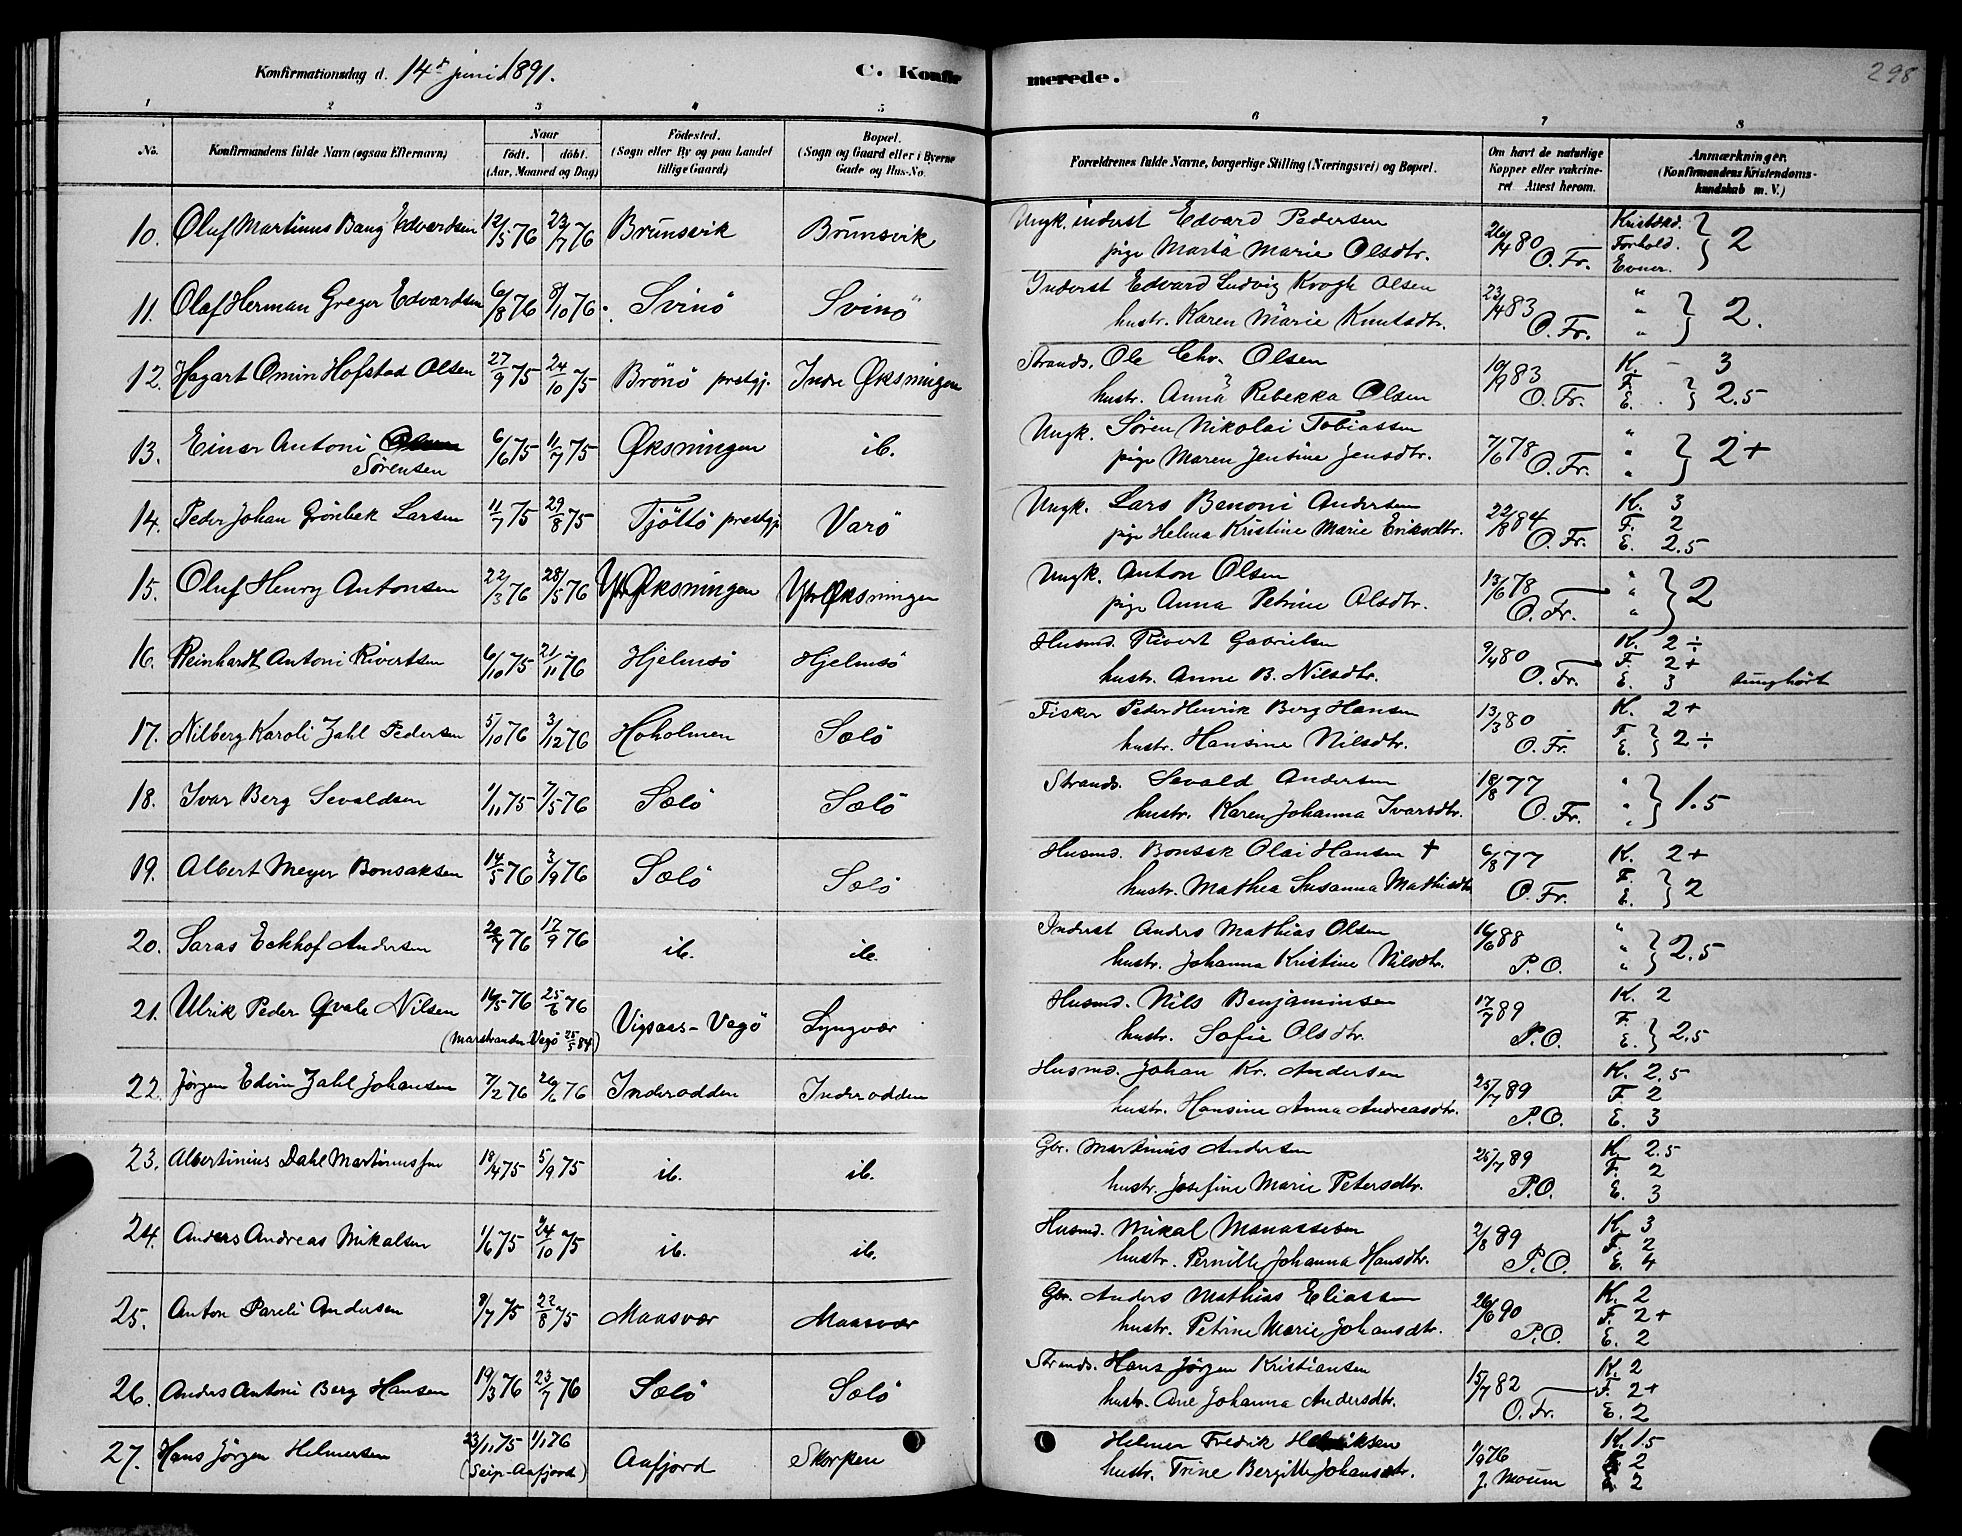 Konfirmationsdag d. 14de juni 1891. C. Konfirmerede. 298
1 2 3 4 5 6 7 8
No. Konfirmandens fulde Navn (ogsaa Efternavn) Naar födt. döbt. (Aar, Maaned og Dag) Födested. (Sogn eller By og paa Landet tillige Gaard) Bopæl. (Sogn og Gaard eller i Byerne Gade og Hus-No. Forældrenes fulde Navne, borgerlige Stilling (Næringsvei) og Bopæl. Om havt de naturlige Kopper eller vakcineret. Attest herom. Anmærkninger. (Konfirmandens Kristendomskundskab m. V.)
10. Oluf Martinus Bang Edvardsen 12/5 76 23/7 76 Brunsvik Brunsvik Ungk. inderst Edvard Pedersen
pige Marta Marie Olsdtr. 26/4 80 O. Fr. Kristdkd. Forhold. Evner. } 2
11. Olaf Herman Greger Edvardsen 6/8 76 8/10 76. Svinö Svinö Inderst Edvard Ludvig Krogh Olsen
hustr. Karen Marie Knutsdtr. 23/4 83 O. Fr. " " " } 2.
12. Hagart Omin Hofstad Olsen 27/9 75 24/10 75 Brönö prestgj. Indre Øksningen Strands. Ole Chr. Olsen
hustr. Anna Rebekka Olsen 10/9 83 O. Fr. K. - 3 F. E. } 2.5
13. Einar Antoni Sørensen 6/6 75 11/7 75 Øksningen ib. Ungk. Søren Nikolai Tobiassen
pige Maren Jensine Jensdtr. 7/6 78 O. Fr. " " " } 2+
14. Peder Johan Grönbek Larsen 11/7 75 29/8 75 Tjöttö prestgj. Varö Ungk. Lars Benoni Andersen
pige Helma Kristine Marie Eriksdtr. 22/8 84 O. Fr. K. 3 F. 2 E. 2.5
15. Oluf Henry Antonsen 22/3 76 28/5 76 Ytr Øksningen Ytr Øksningen Ungk. Anton Olsen
pige Anna Petrine Olsdtr. 13/6 78 O. Fr. " " " } 2
16. Reinhardt Antoni Rivertsen 6/10 75 21/11 76 Hjelmsö Hjelmsö Husmd. Rivert Gabrielsen
hustr. Anne B. Nilsdtr. 9/4 80 O. Fr. K. 2÷ F. 2+ E. 3 tunghört
17. Nilberg Karoli Zahl Pedersen 5/10 76 3/12 76 Hoholmen Sælö Fisker Peder Henrik Berg Hansen
hustr. Hansine Nilsdtr. 13/3 80 O. Fr. K. 2+ F. E. } 2÷
18. Ivar Berg Sevaldsen 1/11 75 7/5 76 Sælö Sælö Strands. Sevald Andersen
hustr. Karen Johanna Ivarsdtr. 18/8 77 O. Fr. " " " } 1.5
19. Albert Meyer Bonsaksen 14/5 76 3/9 76 Sælö Sælö Husmd. Bonsak Olai Hansen +
hustr. Mathea Susanna Mathisdtr 6/8 77 O. Fr. K. 2+ F. E. } 2
20. Saras Eckhof Andersen 29/7 76 17/9 76 ib. ib. Inderst Anders Mathias Olsen
hustr. Johanna Kristine Nilsdtr. 16/6 88 P. O. " " " } 2.5
21. Ulrik Peder Qvale Nilsen 16/5 76 25/6 76 Vigsaas-Vegö Lyngvær Husmd. Nils Benjaminsen
(Marstrander-Vegö 25/5 84) hustr. Sofie Olsdtr. 17/7 89 P. O. K. 2 F. E. } 2.5
22. Jörgen Edvin Zahl Johansen 7/2 76 26/6 76 Inderodden Inderodden Husmd. Johan Kr. Andersen
hustr. Hansine Anna Andreasdtr. 25/7 89 P. O. K. 2.5 F. 2 E. 3
23. Albertinius Dahl Martinussen 18/4 75 5/9 75 ib. ib. Gbr. Martinus Andersen
hustr. Josefine Marie Petersdtr. 25/7 89 P. O. K. 2.5 F. 2 E. 3
24. Anders Andreas Mikalsen 1/6 75 24/10 75 ib. ib. Husmd. Mikal Manassesen
hustr. Pernille Johanna Hansdtr. 2/8 89 P. O. K. 3 F. 2 E. 4
25. Anton Pareli Andersen 8/7 75 22/8 75 Maasvær Maasvær Gbr. Anders Mathias Eliassen
hustr. Petrine Marie Johansdtr. 26/6 90 P. O. K. 2 F. 2+ E. 2
26. Anders Antoni Berg Hansen 19/3 76 23/7 76 Sælö Sælö Strands. Hans Jörgen Kristiansen
hustr. Ane Johanna Andersdtr. 15/7 82 O. Fr. K. 2 F. 2+ E. 2
27. Hans Jörgen Helmersen 23/11 75 1/1 76 Aafjord Skorpen Helmer Fredik Henriksen
(Seip-Aafjord) hustr. Trine Bergitte Johansdtr. 1/9 76 J. Moum K. 1.5 F. 2 E. 2